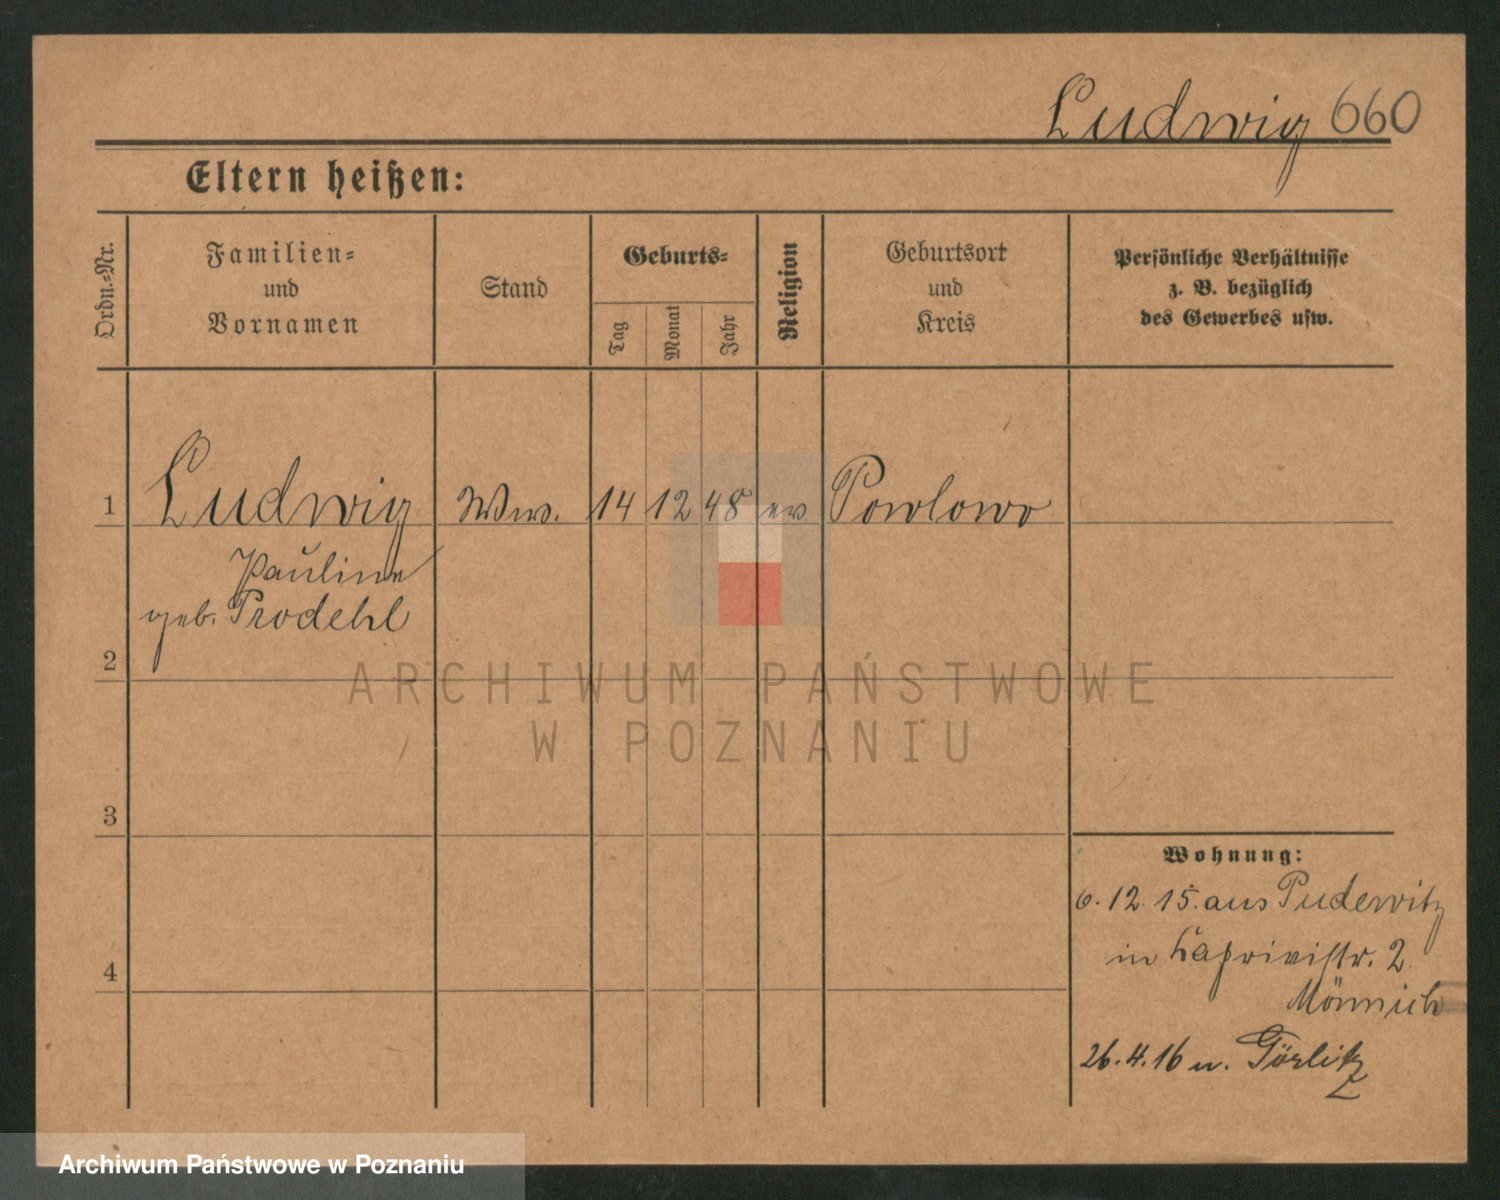 Ludwig 660
Eltern heißen:
Ordn.-Nr.
Familien-
und
Vornamen
Stand
Geburts-
Tag
Monat
Jahr
Religion
Geburtsort
und
Kreis
Persönliche Verhältnisse
z. B. bezüglich
des Gewerbes usw.
1 Ludwig Ww. 14 12 48 ev. Powlowo
Pauline
geb. Prodehl
2
ARCHIWUM PAŃSTWOWE
W POZNANIU
3
Wohnung:
6. 12. 15. aus Pudewitz
in Kaprivistr. 2
Mönnich
4
26. 4. 16 n. Görlitz
Archiwum Państwowe w Poznaniu